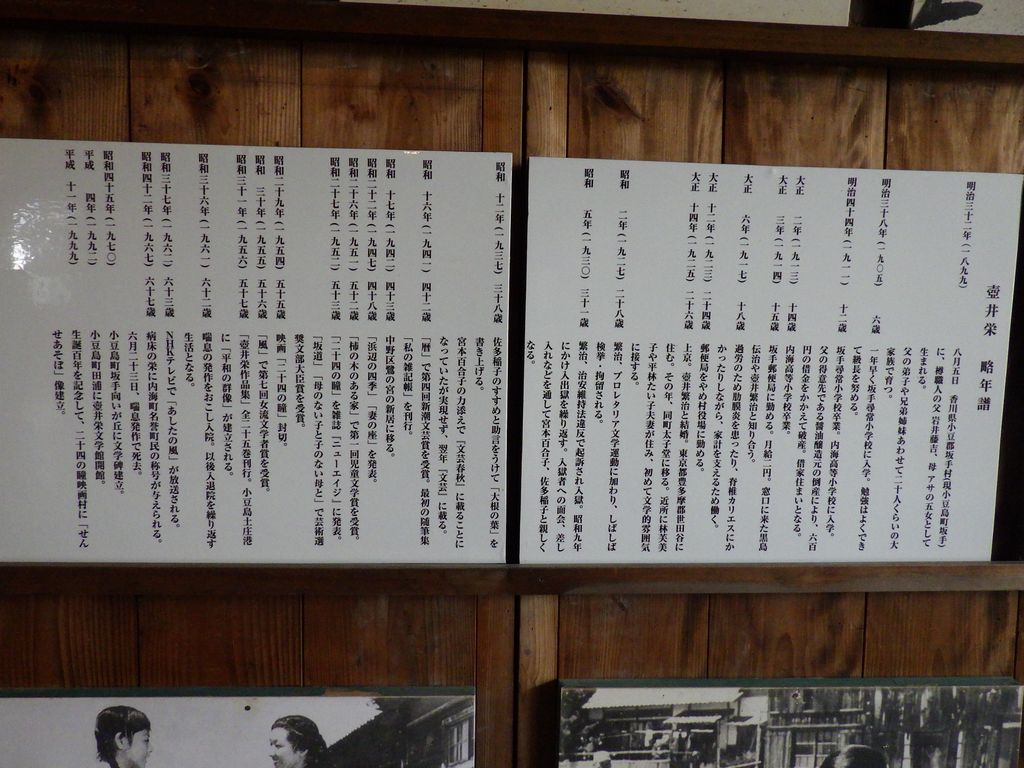 壺井栄　略年譜
明治三十二年(一八九九)
八月五日　香川県小豆郡坂手村(現小豆島町坂手)
に、樽職人の父 岩井藤吉、母 アサの五女として
生まれる。
父の弟子や兄弟姉妹あわせて二十人くらいの大
家族で育つ。
明治三十八年(一九〇五)　六歳
一年早く坂手尋常小学校に入学。勉強はよくでき
て級長を努める。
明治四十四年(一九一一)　十二歳
坂手尋常小学校卒業。内海高等小学校に入学。
父の得意先である醤油醸造元の倒産により、六百
円の借金をかかえて破産。借家住まいとなる。
大正　二年(一九一三)　十四歳
内海高等小学校卒業。
大正　三年(一九一四)　十五歳
坂手郵便局に勤める。月給二円。窓口に来た黒島
伝治や壺井繁治と知り合う。
大正　六年(一九一七)　十八歳
過労のため肋膜炎を患ったり、脊椎カリエスにか
かったりしながら、家計を支えるため働く。
大正　十二年(一九二三)　二十四歳
郵便局をやめ村役場に勤める。
大正　十四年(一九二五)　二十六歳
上京。壺井繁治と結婚。東京都豊多摩郡世田谷に
住む。その年、同町太子堂に移る。近所に林芙美
子や平林たい子夫妻が住み、初めて文学的雰囲気
に接する。
昭和　二年(一九二七)　二十八歳
繁治、プロレタリア文学運動に加わり、しばしば
検挙、拘留される。
昭和　五年(一九三〇)　三十一歳
繁治、治安維持法違反で起訴され入獄。昭和九年
にかけ入出獄を繰り返す。入獄者への面会、差し
入れなどを通して宮本百合子、佐多稲子と親しく
なる。
昭和　十二年(一九三七)　三十八歳
佐多稲子のすすめと助言をうけて「大根の葉」を
書き上げる。
宮本百合子の力添えで「文芸春秋」に載ることに
なっていたが実現せず、翌年「文芸」に載る。
昭和　十六年(一九四一)　四十二歳
「暦」で第四回新潮文芸賞を受賞。最初の随筆集
「私の雑記帳」を刊行。
昭和　十七年(一九四二)　四十三歳
中野区鷺の宮の新居に移る。
昭和二十二年(一九四七)　四十八歳
「浜辺の四季」「妻の座」を発表。
昭和二十六年(一九五一)　五十二歳
「柿の木のある家」で第一回児童文学賞を受賞。
昭和二十七年(一九五二)　五十三歳
「二十四の瞳」を雑誌「ニューエイジ」に発表。
「坂道」「母のない子と子のない母と」で芸術選
奨文部大臣賞を受賞。
昭和二十九年(一九五四)　五十五歳
映画「二十四の瞳」封切。
昭和　三十年(一九五五)　五十六歳
「風」で第七回女流文学者賞を受賞。
昭和三十一年(一九五六)　五十七歳
「壺井栄作品集」全二十五巻刊行。小豆島土庄港
に「平和の群像」が建立される。
昭和三十六年(一九六一)　六十二歳
喘息の発作をおこし入院。以後入退院を繰り返す
生活となる。
昭和三十七年(一九六二)　六十三歳
NHKテレビで「あしたの風」が放送される。
昭和四十二年(一九六七)　六十七歳
病床の栄に内海町名誉町民の称号が与えられる。
六月二十三日、喘息発作で死去。
昭和四十五年(一九七〇)
小豆島町坂手向いが丘に文学碑建立。
平成　四年(一九九二)
小豆島町田浦に壺井栄文学館開館。
平成　十一年(一九九九)
生誕百年を記念して、二十四の瞳映画村に「せん
せあそぼ」像建立。